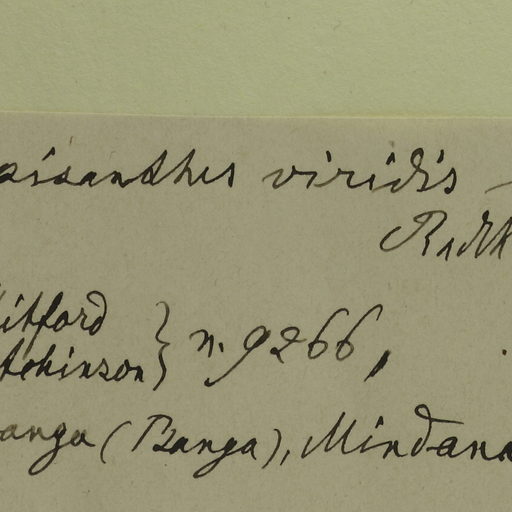 pisanthes viridis —
Radlk
hitford
tchinson } n. 9266,
anga (Banga), Mindana